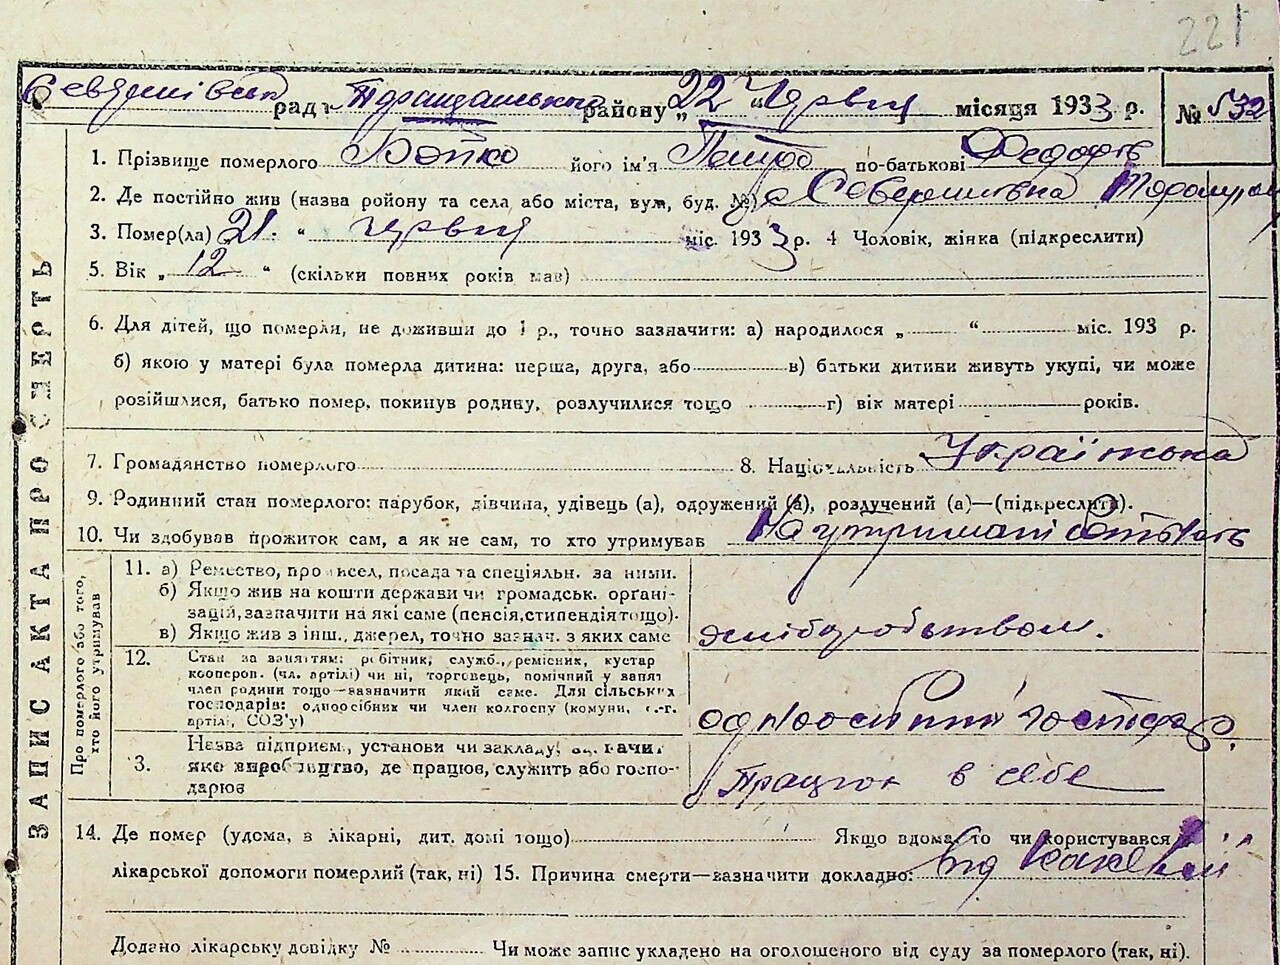 221
раді району „22“ червня місяця 1933 р. № 532
1. Прізвище померлого Бойко його ім'я Петро по-батькові Федорів
2. Де постійно жив (назва району та села або міста, вул, буд. №)
3. Помер(ла) 21 “ червня міс. 1933 р. 4 Чоловік, жінка (підкреслити)
5. Вік „ 12 “ (скільки повних років мав)
6. Для дітей, що померли, не доживши до 1 р., точно зазначити: а) народилося „ “ міс. 193 р.
б) якою у матері була померла дитина: перша, друга, або в) батьки дитини живуть укупі, чи може
розійшлися, батько помер, покинув родину, розлучилися тощо г) вік матері років.
7. Громадянство померлого 8. Національність Українська
9. Родинний стан померлого: парубок, дівчина, удівець (а), одружений (а), розлучений (а)—(підкреслити).
10. Чи здобував прожиток сам, а як не сам, то хто утримував На утримані батьків
ЗАПИС АКТА ПРО СМЕРТЬ
Про померлого або того, хто його утримував
11. а) Ремество, промисел, посада та спеціяльн. за ними.
б) Якщо жив на кошти держави чи громадськ. орґані-
зацій, зазначити на які саме (пенсія, стипендія тощо).
в) Якщо жив з інш., джерел, точно зазнач. з яких саме
хліборобством.
12. Стан за заняттям: робітник, служб., ремісник, кустар
кооперов. (чл. артілі) чи ні, торговець, помічний у занят
член родини тощо—зазначити який саме. Для сільських
господарів: одноосібних чи член колгоспу (комуни, с.-г.
артілі, СОЗ'у)
одноосібний господар.
Назва підприєм., установи чи закладу,
3. яке виробництво, де працює, служить або госпо-
дарює
Працює в себе
14. Де помер (удома, в лікарні, дит. домі тощо) Якщо вдома то чи користувався
лікарської допомоги померлий (так, ні) 15. Причина смерти—зазначити докладно: від
Додано лікарську довідку № Чи може запис укладено на оголошеного від суду за померлого (так, ні).